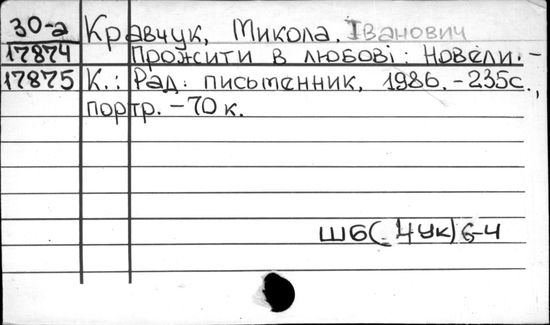 30-а Кравчук, Микола Іванович
17874 Прожити в любові: Новели. –
17875 К.: Рад. письменник, 1986. – 235с.,
портр. – 70 к.
Ш6(4Ук)6-4